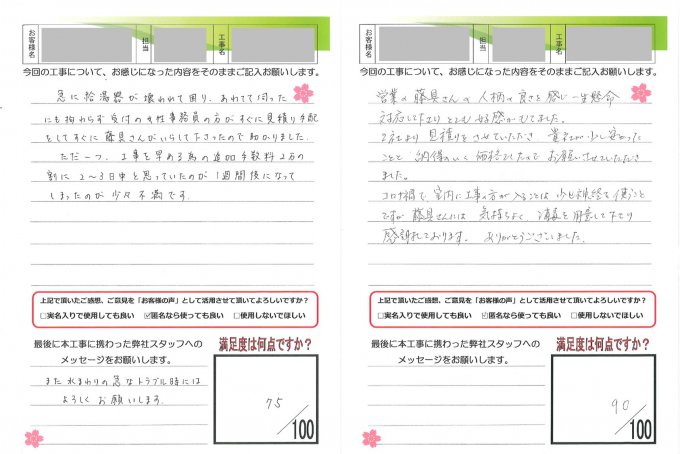 お客様名
担当
工事名
今回の工事について、お感じになった内容をそのままご記入お願いします。
急に給湯器が壊われて困り、あわてて伺った
にも拘わらず受付の女性事務員の方がすぐに見積り手配
をしてすぐに藤具さんがいらして下さったので助かりました。
ただ一つ、工事を早める為の追加手数料2万の
割に2〜3日中と思っていたのが1週間後になって
しまったのが少々不満です。
上記で頂いたご感想、ご意見を「お客様の声」として活用させて頂いてよろしいですか?
□実名入りで使用しても良い ☑匿名なら使っても良い □使用しないでほしい
最後に本工事に携わった弊社スタッフへの
メッセージをお願いします。
また水まわりの急なトラブル時には
よろしくお願いします。
満足度は何点ですか?
75
/100
お客様名
担当
工事名
今回の工事について、お感じになった内容をそのままご記入お願いします。
営業の藤具さんの人柄の良さを感じ一生懸命
対応して下さりとても好感がもてました。
2社より見積りをさせていただき貴社が少し安かった
ことと納得のいく価格でしたのでお願いさせていただき
ました。
コロナ禍で室内に工事の方が入ることは少し神経を使うこと
ですが藤具さんには気持ちよく消毒を用意して下さり
感謝しております。ありがとうございました。
上記で頂いたご感想、ご意見を「お客様の声」として活用させて頂いてよろしいですか?
□実名入りで使用しても良い ☑匿名なら使っても良い □使用しないでほしい
最後に本工事に携わった弊社スタッフへの
メッセージをお願いします。
満足度は何点ですか?
90
/100